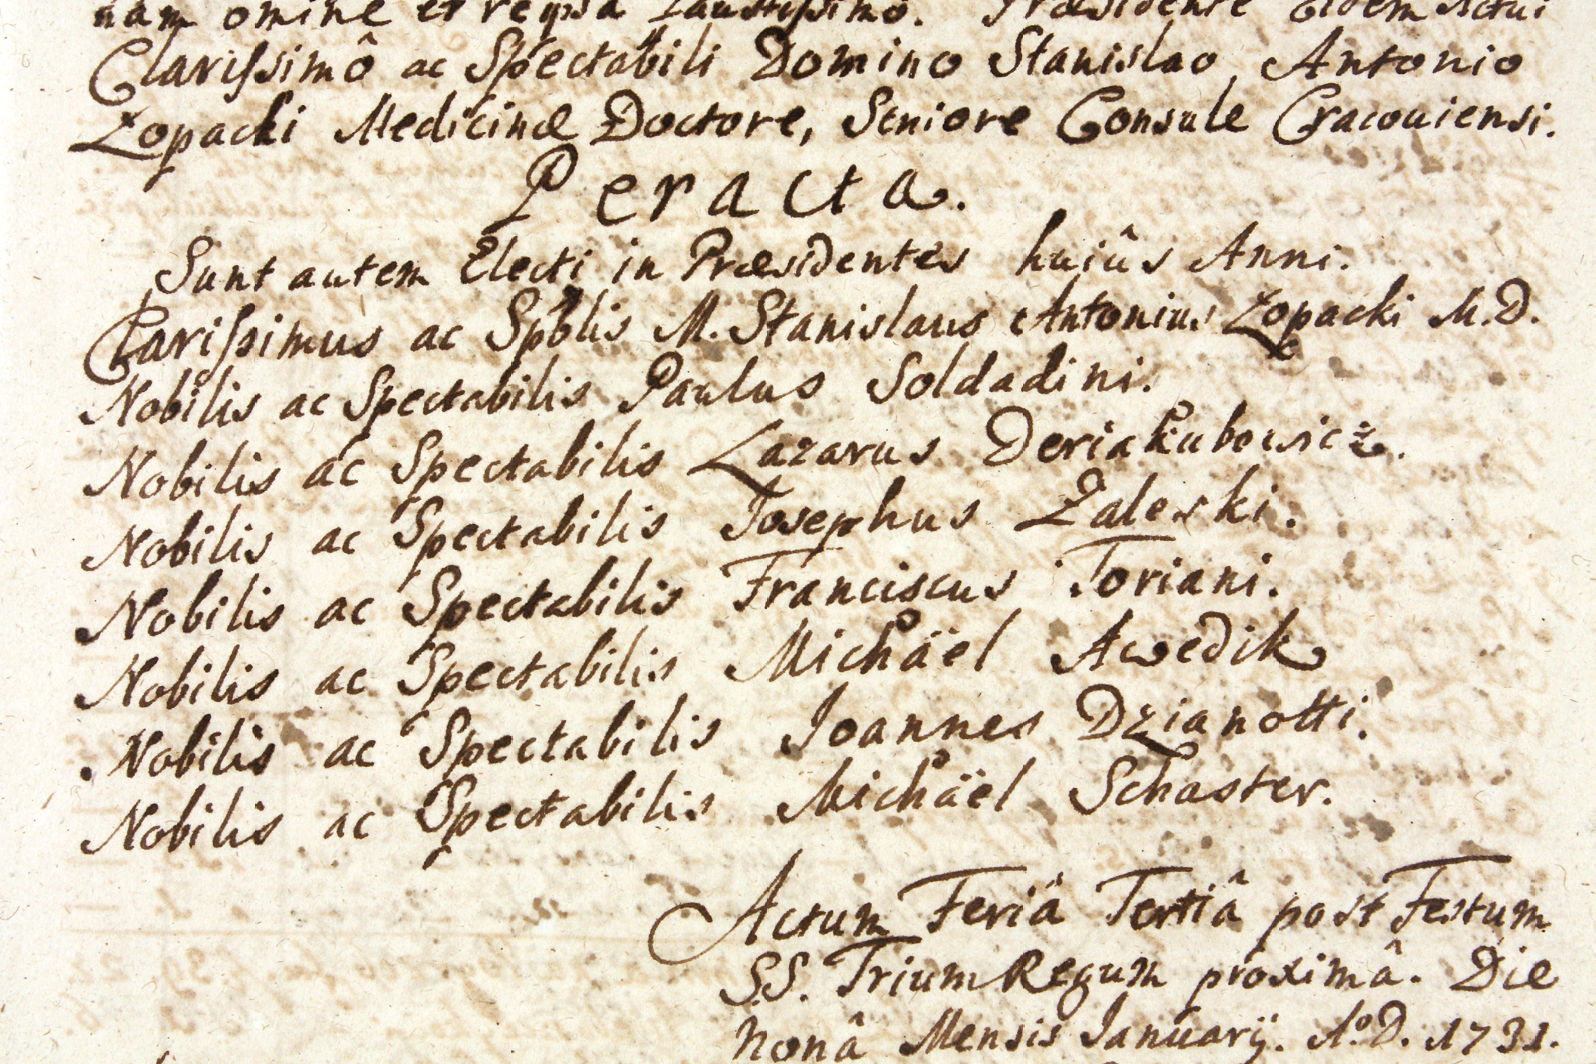 nam omine et reipsa Faustissimo. Præsidente Eidem Actui
Clarissimô ac Spectabili Domino Stanislao Antonio
Łopacki Medicinæ Doctore, Seniore Consule Cracouiensi.
Peracta.
Sunt autem Electi in Præsidentes huiûs Anni.
Clarissimus ac Spblis M. Stanislaus Antonius Łopacki M.D.
Nobilis ac Spectabilis Paulus Soldadini.
Nobilis ac Spectabilis Lazarus Deriakubowicz.
Nobilis ac Spectabilis Josephus Zaleski.
Nobilis ac Spectabilis Franciscus Toriani.
Nobilis ac Spectabilis Michäel Awedik
Nobilis ac Spectabilis Joannes Dzianotti.
Nobilis ac Spectabilis Michäel Schaster.
Actum Feriâ Tertiâ post Festum
SS. Trium Regum proximâ. Die
Nonâ Mensis Januarÿ. Aº.D. 1731.